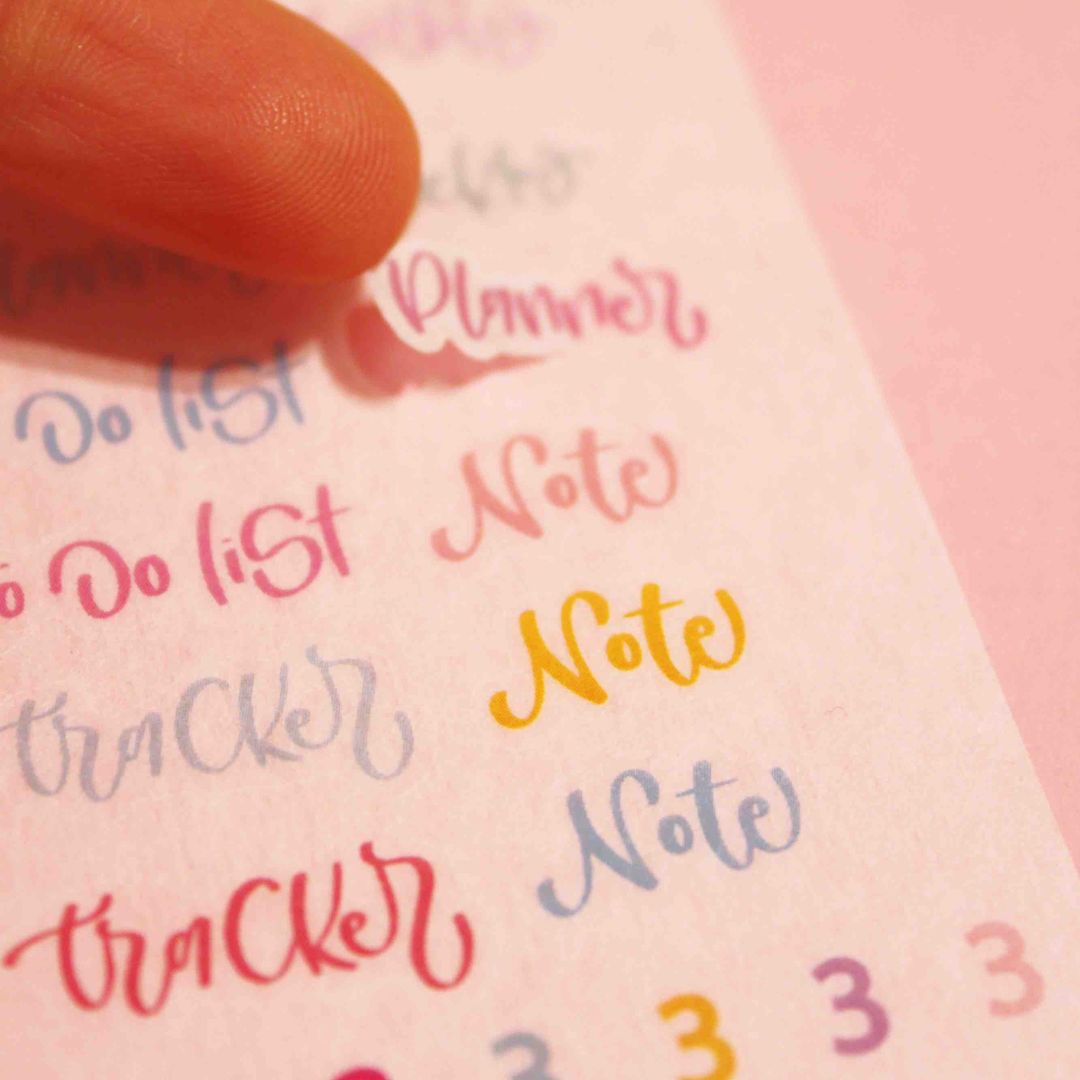 Planner
Do list
Note
To Do list
Note
tracker
Note
tracker
3 3 3 3